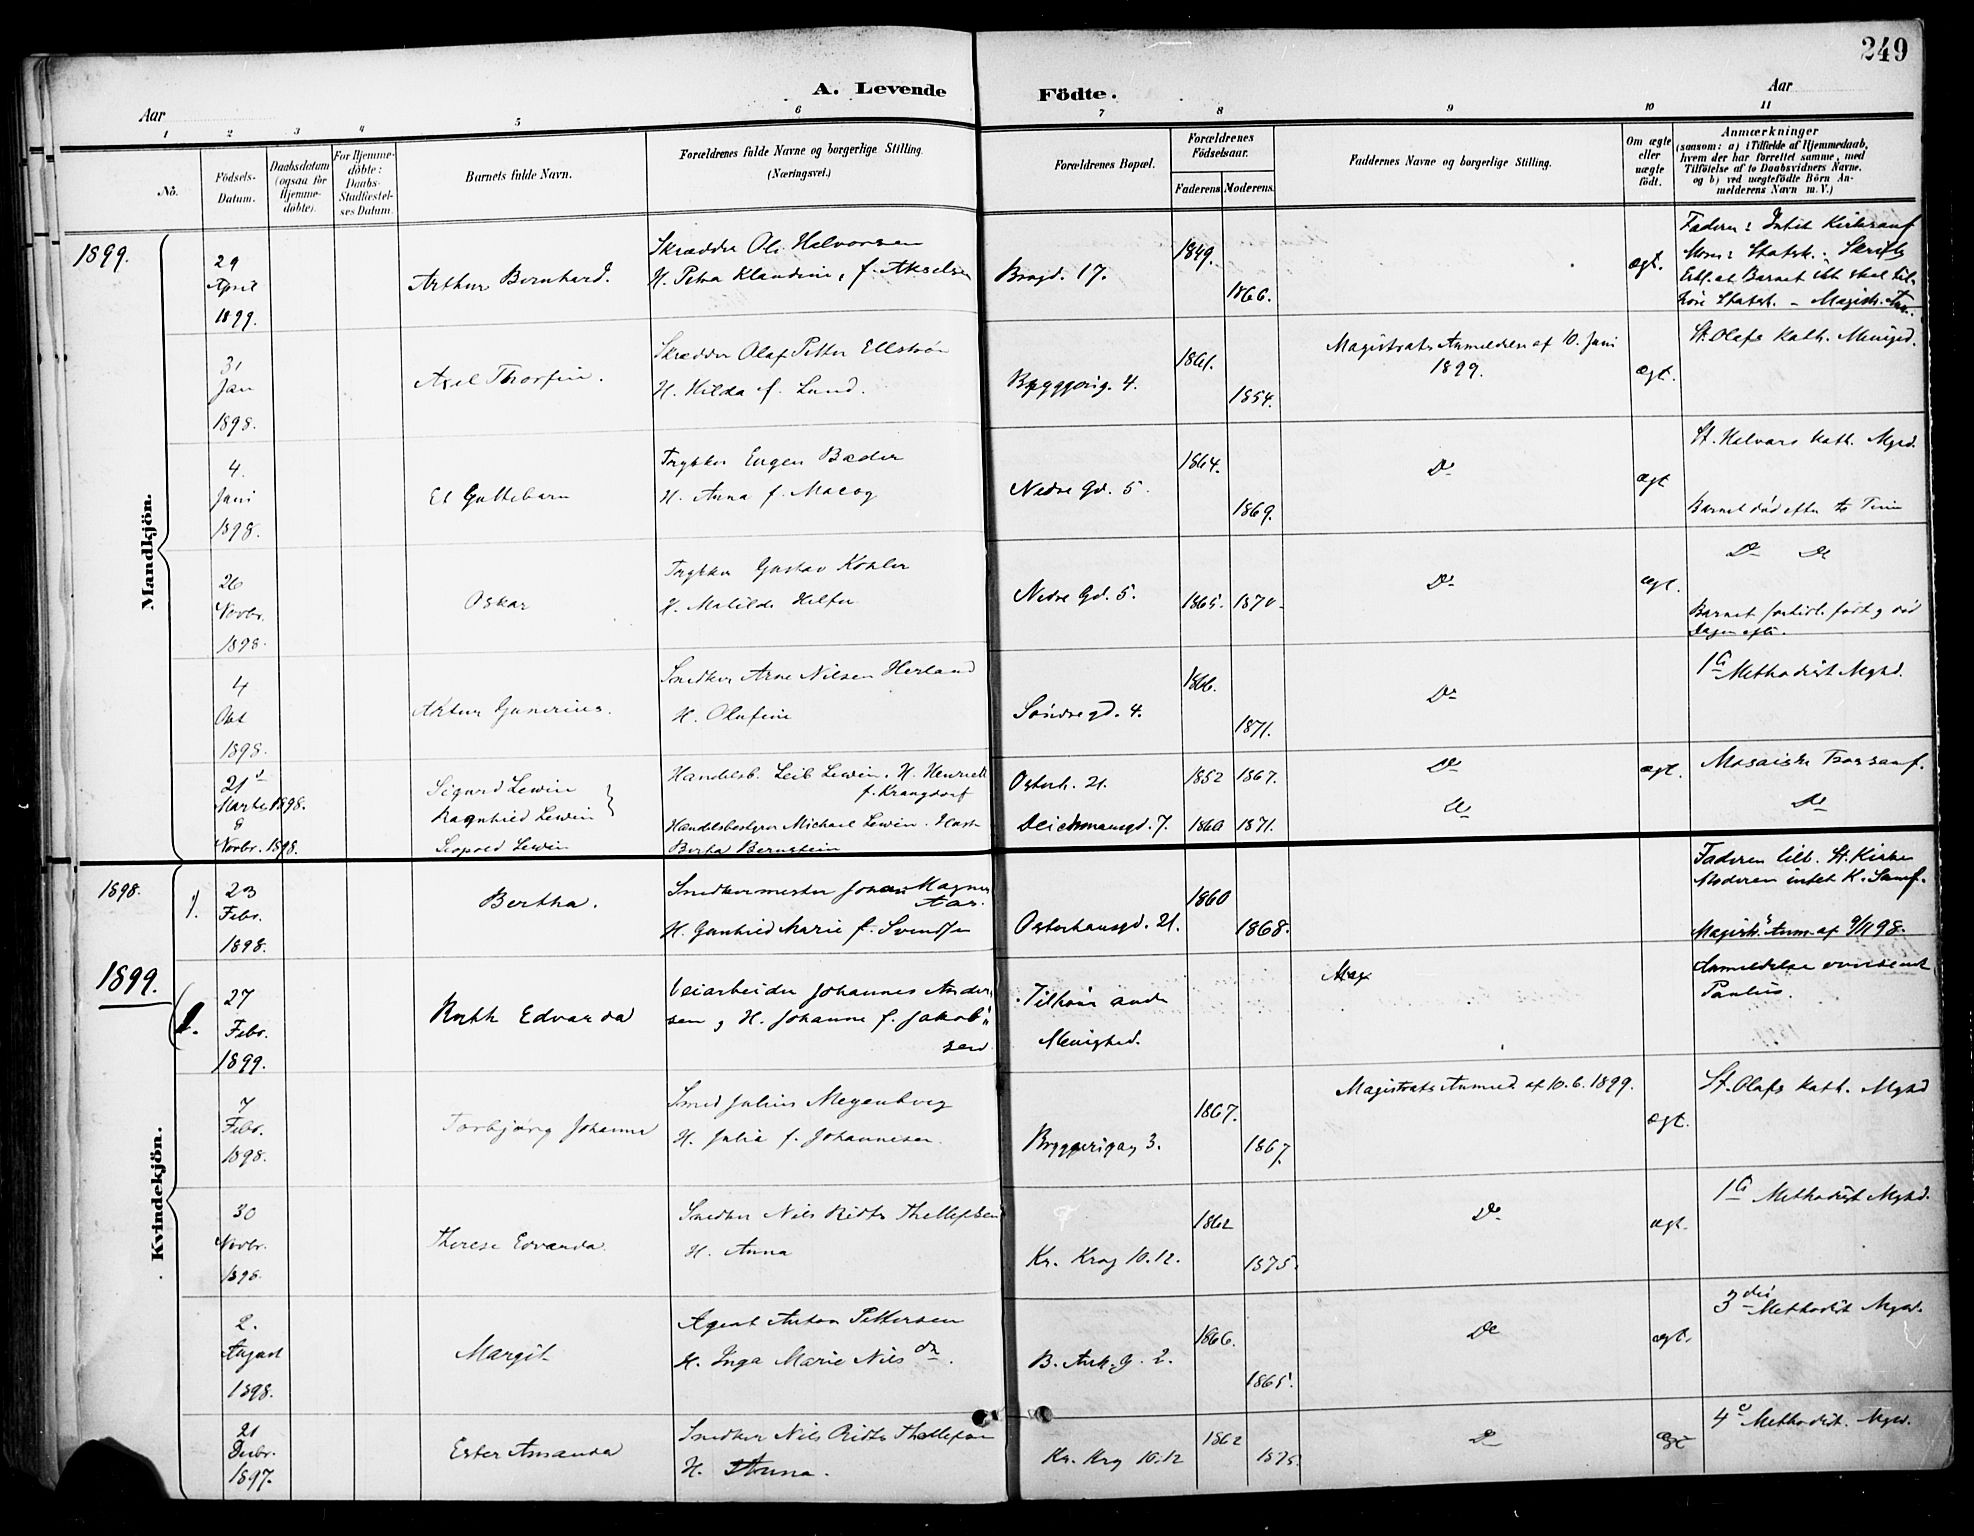 249
A. Levende Födte.
Aar
Aar
1 2 3 4 5 6 7 8 9 10 11
No.
Födsels-Datum.
Daabsdatum (ogsaa for Hjemme-döbte).
For Hjemme-döbte: Daabs-Stadfæstel-ses Datum.
Barnets fulde Navn.
Forældrenes fulde Navne og borgerlige Stilling.
(Næringsvei.)
Forældrenes Bopæl.
Forældrenes Födselsaar.
Faderens. Moderens.
Faddernes Navne og borgerlige Stilling.
Om ægte eller uægte födt.
Anmærkninger
(saasom: a) i Tilfælde af Hjemmedaab,
hvem der har forrettet samme, med
Tilföielse af to Daabsvidners Navne.
og b) ved uægtefödte Börn An-
melderens Navn m. V.)
Mandkjön.
1899.
29 April 1899.
Arthur Bernhard.
Skrædder Ole Halvorsen
H. Petra Klaudine, f. Akselsen
Brogd. 17.
1849.
1866.
ægt.
Faderen: Intet Kirkesamf
Moren: Statsk. Skriftl.
Erkl. at Barnet ikk skal til-
høre Statsk. – Magistr.
31 Jan 1898.
Axel Thorfin.
Skrædder Olaf Petter Ellström
H. Hilda f. Lund.
Bryggerig. 4.
1861.
1854.
Magistrats Anmeldelse af 10. Juni
1899.
ægt.
St. Olafs Kath. Menigd.
4. Juni 1898.
Et Guttebarn
Trykker Eugen Bader
H. Anna f. Macog
Nedre Gd. 5.
1864.
1869.
Do
ægt
St. Halvars Kath. Mgd.
Barnet død efter to Timer
26 Novbr. 1898.
Oskar
Trykker Gustav Köhler
H. Matilde Helfer
Nedre Gd. 5.
1865. 1870.
Do
ægt.
Do Do
Barnet født og død
Dagen efter.
4 Okt 1898.
Artur Gunerius.
Snedker Arne Nilsen Herland
H. Olufine
Söndregd. 4.
1866.
1871.
Do
1ste Methodist Mghd.
21 Marts 1898.
Sigurd Lewin
Ragnhild Lewin
Handelsb. Leib Lewin. H. Henriette
f. Krangdorf
Osterh. 21.
1852 1867.
Do
ægt.
Mosaiske Trossamf.
8 Novbr. 1898.
Leopold Lewin
Handelsbestyrer Michael Lewin. Hustr
Berta Bernstein
Deichmansgd. 7.
1860 1871.
Do
Do
Kvindekjön.
1898.
1.
23 Febr. 1898.
Bertha.
Snedkermester Johan Magnus
Aas.
H. Gunhild Marie f. Svendsen
Osterhausgd. 21.
1860
1868.
Faderen till. St. Kirke
Moderen intet K. Samf.
Magistr. Anm. af 9/11 98.
1899.
2.
27 Febr. 1899.
Ruth Edvarda
Veiarbeider Johannes Ander-
sen og H. Johanne f. Jakob-
sen
Tilhører anden
Menighed.
Mag
Anmeldelse oversendt
Paulus.
7 Febr. 1898.
Torbjörg Johanne
Smed Julius Meyenburg
H. Julia f. Johannesen.
Bryggerigag 3.
1867.
1867.
Magistrats Anmeld. af 10.6.1899.
ægt.
St. Olafs Kath. Mghd
30 Novbr. 1898.
Therese Edvarda.
Snedker Nils Ridts Thellefsen
H. Anna
Kr. Krog 10.12.
1862
1875.
Do
ægt.
1ste Methodist Mghd.
2. August 1898.
Margit
Agent Anton Pettersen
H. Inga Marie Nilsdr.
B. Ank. G. 2.
1866.
1865.
Do
ægt.
3die Methodist Mghd.
21 Decbr. 1897.
Ester Amanda
Snedker Nils Ridts Thellefsen
H. Anna.
Kr. Krog 10.12
1862
1875.
Do
ægt
4e Methodist. Mghd.